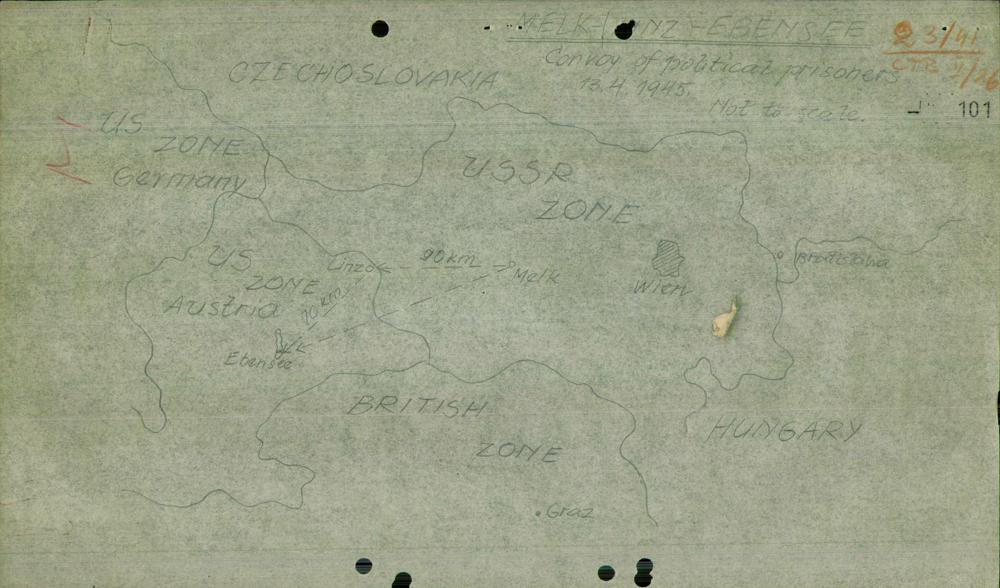 MELK-LINZ-EBENSEE
Convoy of political prisoners
13.4.1945.
Not to scale.
23/41
CTB
101
CZECHOSLOVAKIA
US
ZONE
Germany
USSR
ZONE
US
ZONE
Austria
Linz
90 km
Melk
70 km
Ebensee
Wien
Bratislava
BRITISH
ZONE
HUNGARY
Graz